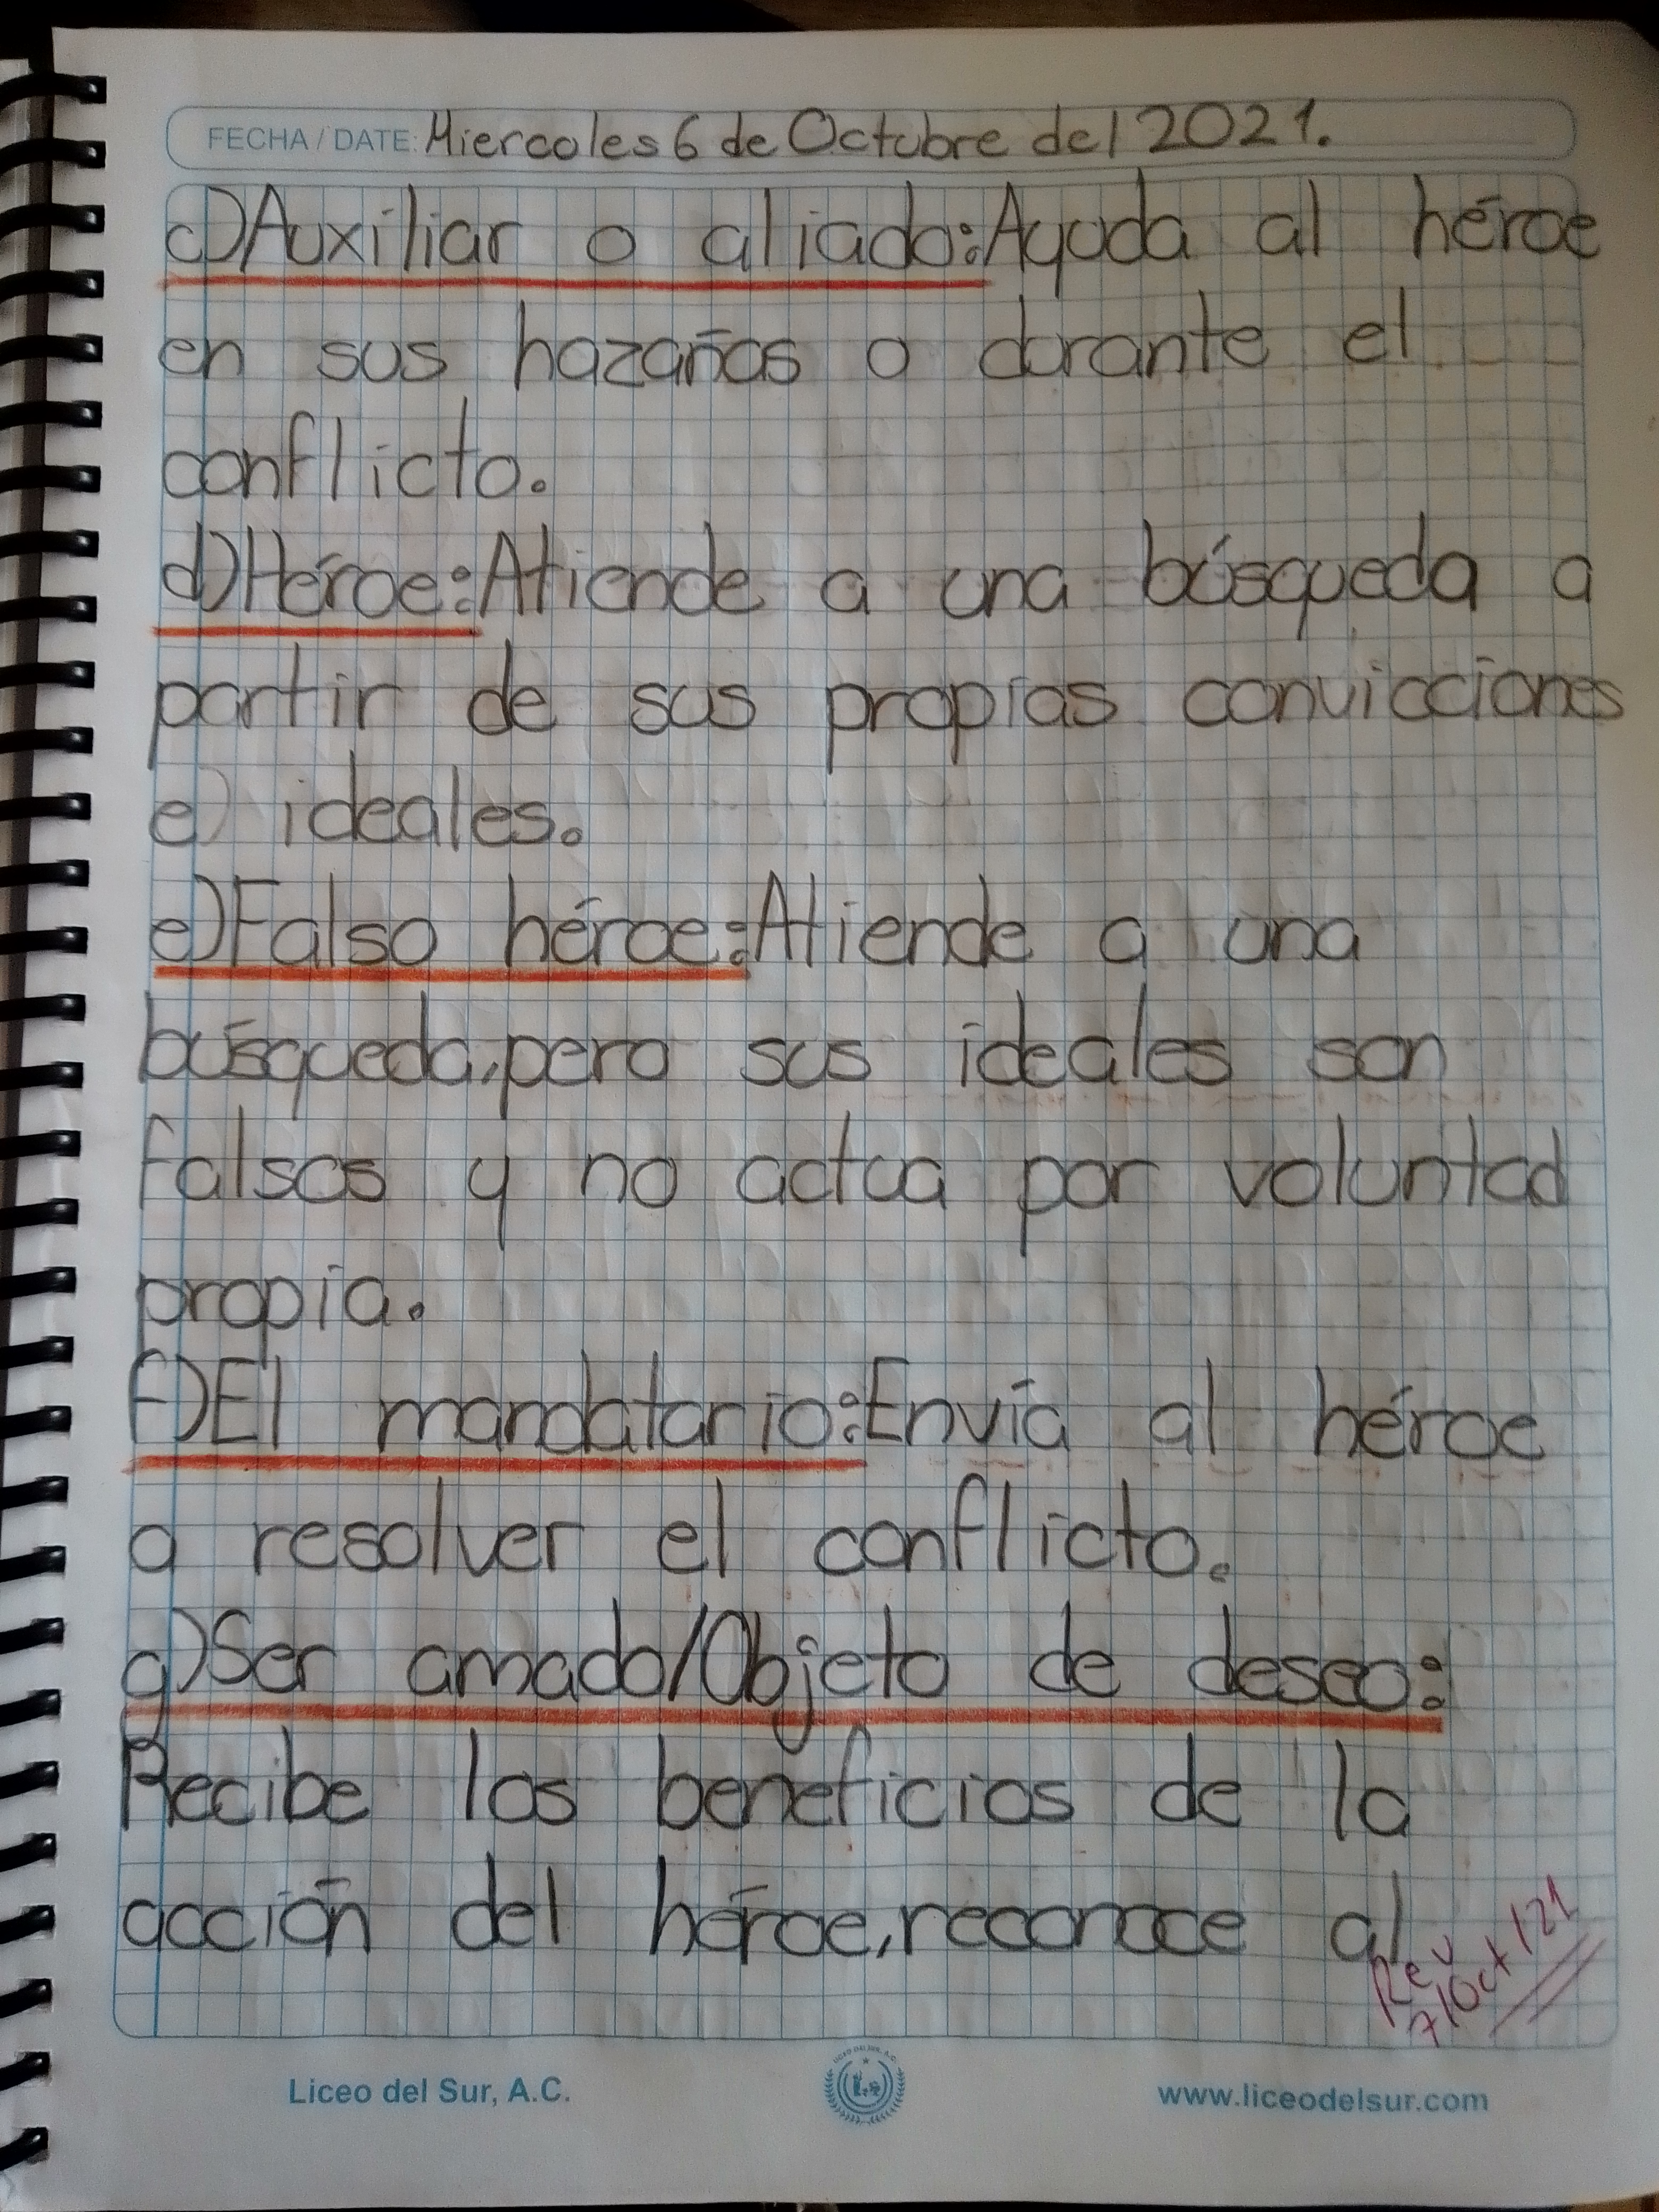 FECHA / DATE: Miercoles 6 de Octubre del 2021.
c)Auxiliar o aliado:Ayuda al héroe
en sus hazañas o durante el
conflicto.
d)Héroe:Atiende a una búsqueda a
partir de sus propias convicciones
e) ideales.
e)Falso héroe:Atiende a una
búsqueda,pero sus ideales son
falsos y no actua por voluntad
propia.
f)El mandatario:Envía al héroe
a resolver el conflicto.
g)Ser amado/Objeto de deseo:
Recibe los beneficios de la
acción del héroe,reconoce al
Rev
7/Oct/21
Liceo del Sur, A.C.
www.liceodelsur.com